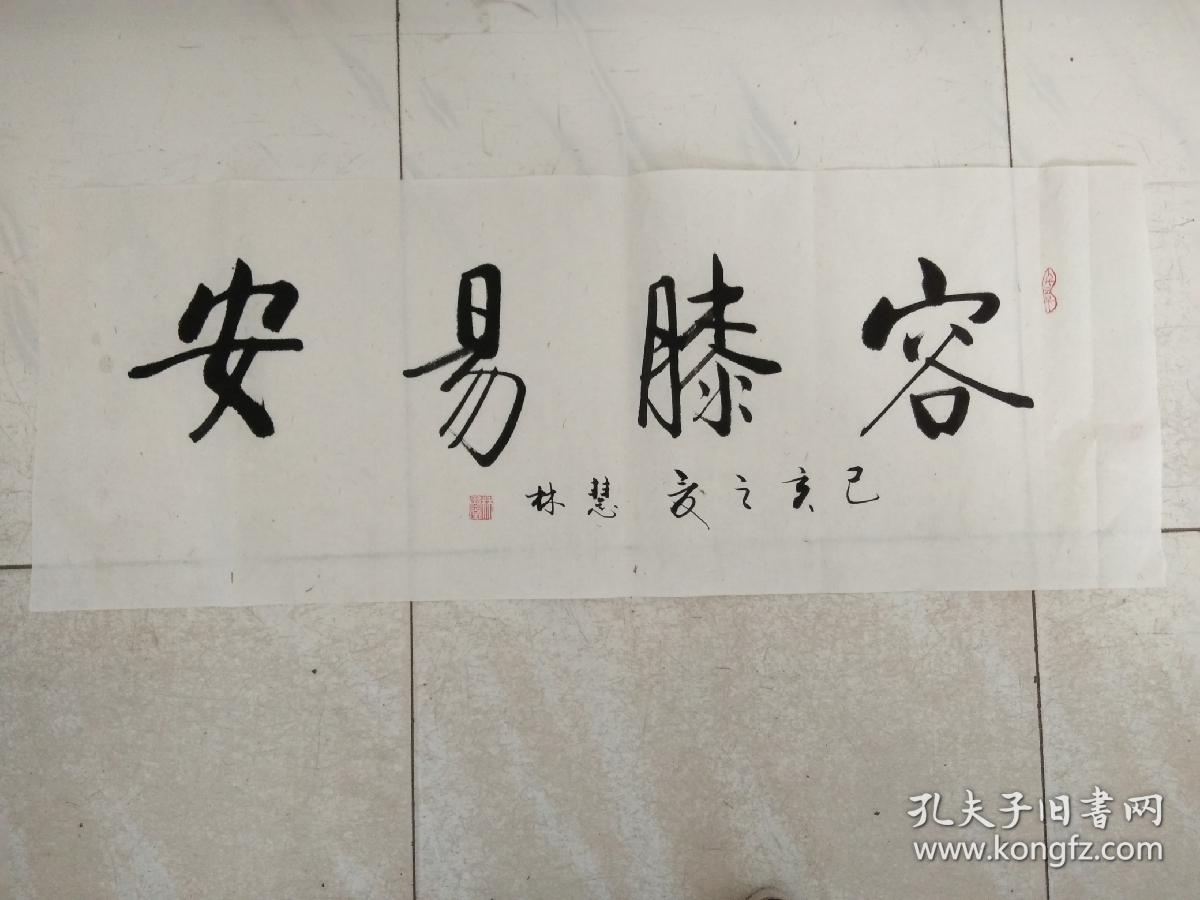 容膝易安
己亥之夏 慧林
孔夫子旧書网
www.kongfz.com